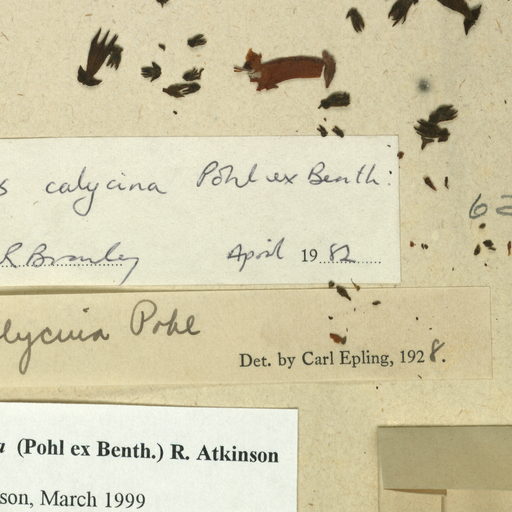 s calycina Pohl ex Benth:
R Bromley April 19 82
62
lycina Pohl
Det. by Carl Epling, 1928.
a (Pohl ex Benth.) R. Atkinson
son, March 1999